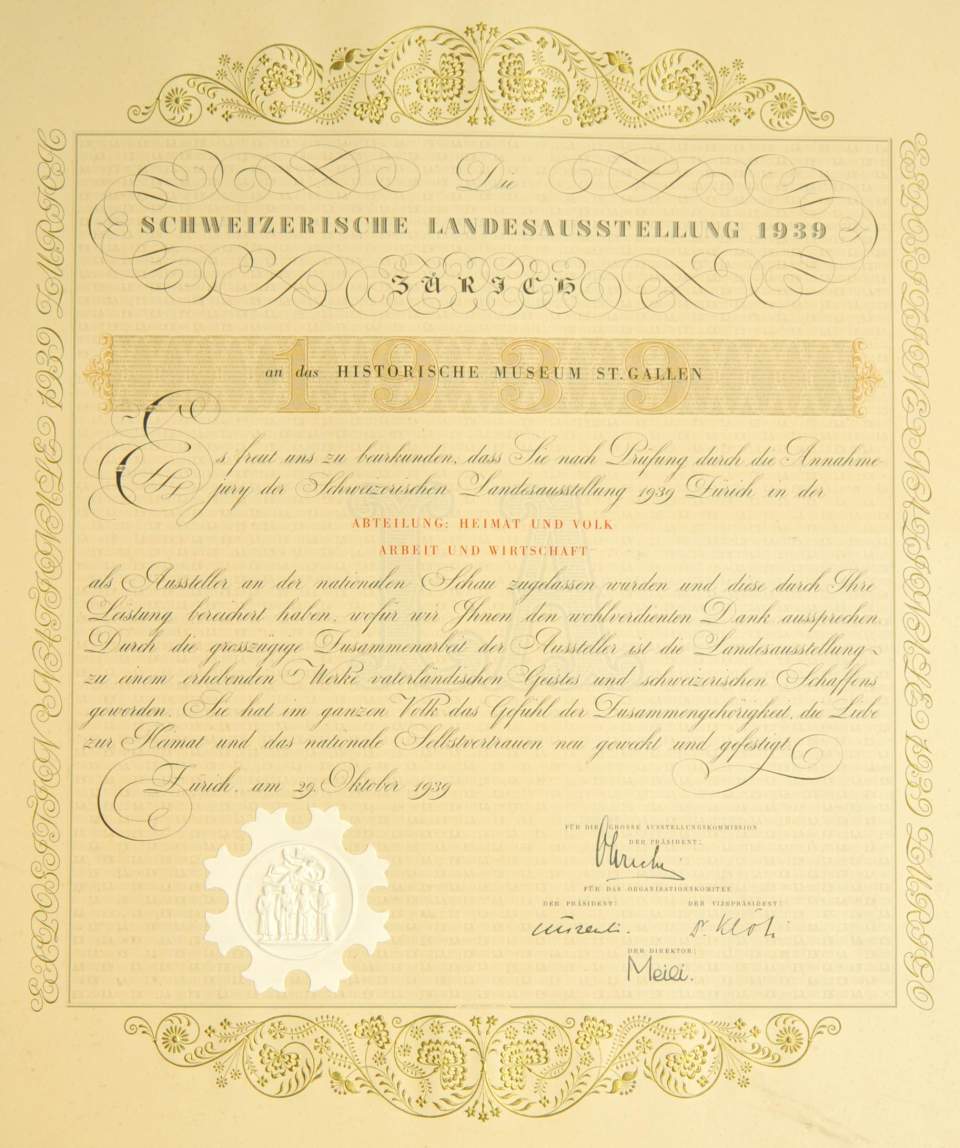 Die
SCHWEIZERISCHE LANDESAUSSTELLUNG 1939
ZÜRICH
1939
an das HISTORISCHE MUSEUM ST. GALLEN
Es freut uns zu beurkunden, dass Sie nach Prüfung durch die Annahme
jury der Schweizerischen Landesausstellung 1939 Zürich in der
ABTEILUNG: HEIMAT UND VOLK
ARBEIT UND WIRTSCHAFT
als Aussteller an der nationalen Schau zugelassen wurden und diese durch Ihre
Leistung bereichert haben, wofür wir Ihnen den wohlverdienten Dank aussprechen.
Durch die grosszügige Zusammenarbeit der Aussteller ist die Landesausstellung
zu einem erhebenden Werke vaterländischen Geistes und schweizerischen Schaffens
geworden. Sie hat im ganzen Volk das Gefühl der Zusammengehörigkeit, die Liebe
zur Heimat und das nationale Selbstvertrauen neu geweckt und gefestigt.
Zürich, am 29. Oktober 1939
FÜR DIE GROSSE AUSSTELLUNGSKOMMISSION
DER PRÄSIDENT:
FÜR DAS ORGANISATIONSKOMITEE
DER PRÄSIDENT: DER VIZEPRÄSIDENT:
Dr. Klöti
DER DIREKTOR:
Meili.
EXPOSITION NATIONALE 1939 ZURICH
ESPOSIZIONE NAZIONALE 1939 ZURIGO